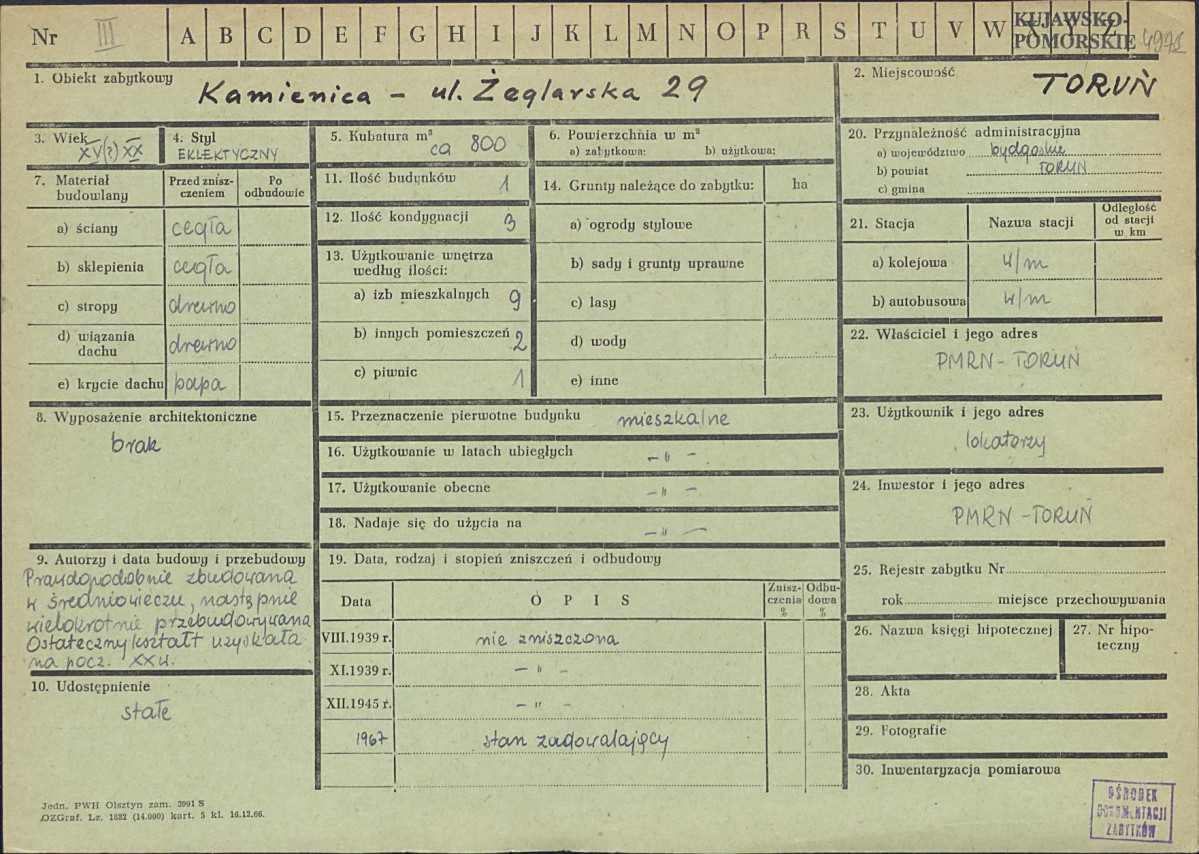 Nr III A B C D E F G H I J K L M N O P R S T U V W X Y Z
KUJAWSKO-
POMORSKIE
1. Obiekt zabytkowy
Kamienica - ul. Żeglarska 29
2. Miejscowość
TORUŃ
3. Wiek
XV(?) XX
4. Styl
EKLEKTYCZNY
5. Kubatura m³
ca 800
6. Powierzchnia w m²
a) zabytkowa: b) użytkowa:
7. Materiał
budowlany
Przed znisz-
czeniem
Po
odbudowie
a) ściany cegła
b) sklepienia cegła
c) stropy drewno
d) wiązania
dachu drewno
e) krycie dachu papa
8. Wyposażenie architektoniczne
brak
9. Autorzy i data budowy i przebudowy
Prawdopodobnie zbudowana
w średniowieczu, następnie
wielokrotnie przebudowywana
Ostateczny kształt uzyskała
na pocz. XXw.
10. Udostępnienie
stałe
11. Ilość budynków 1
12. Ilość kondygnacji 3
13. Użytkowanie wnętrza
według ilości:
a) izb mieszkalnych 9
b) innych pomieszczeń 2
c) piwnic 1
14. Grunty należące do zabytku: ha
a) ogrody stylowe
b) sady i grunty uprawne
c) lasy
d) wody
e) inne
15. Przeznaczenie pierwotne budynku mieszkalne
16. Użytkowanie w latach ubiegłych - " -
17. Użytkowanie obecne - " -
18. Nadaje się do użycia na - " -
19. Data, rodzaj i stopień zniszczeń i odbudowy
Data
O P I S
Znisz-
czenia
%
Odbu-
dowa
%
VIII.1939 r. nie zniszczona
XI.1939 r. - " -
XII.1945 r. - " -
1967 stan zadowalający
20. Przynależność administracyjna
a) województwo bydgoskie
b) powiat TORUŃ
c) gmina
21. Stacja
Nazwa stacji
Odległość
od stacji
w km
a) kolejowa w/m
b) autobusowa w/m
22. Właściciel i jego adres
PMRN - TORUŃ
23. Użytkownik i jego adres
lokatorzy
24. Inwestor i jego adres
PMRN - TORUŃ
25. Rejestr zabytku Nr
rok miejsce przechowywania
26. Nazwa księgi hipotecznej
27. Nr hipo-
teczny
28. Akta
29. Fotografie
30. Inwentaryzacja pomiarowa
OŚRODEK
DOKUMENTACJI
ZABYTKÓW
Jedn. PWH Olsztyn zam. 3991 S
OZGraf. Lz. 1882 (14.000) kart. 5 kl. 16.12.66.